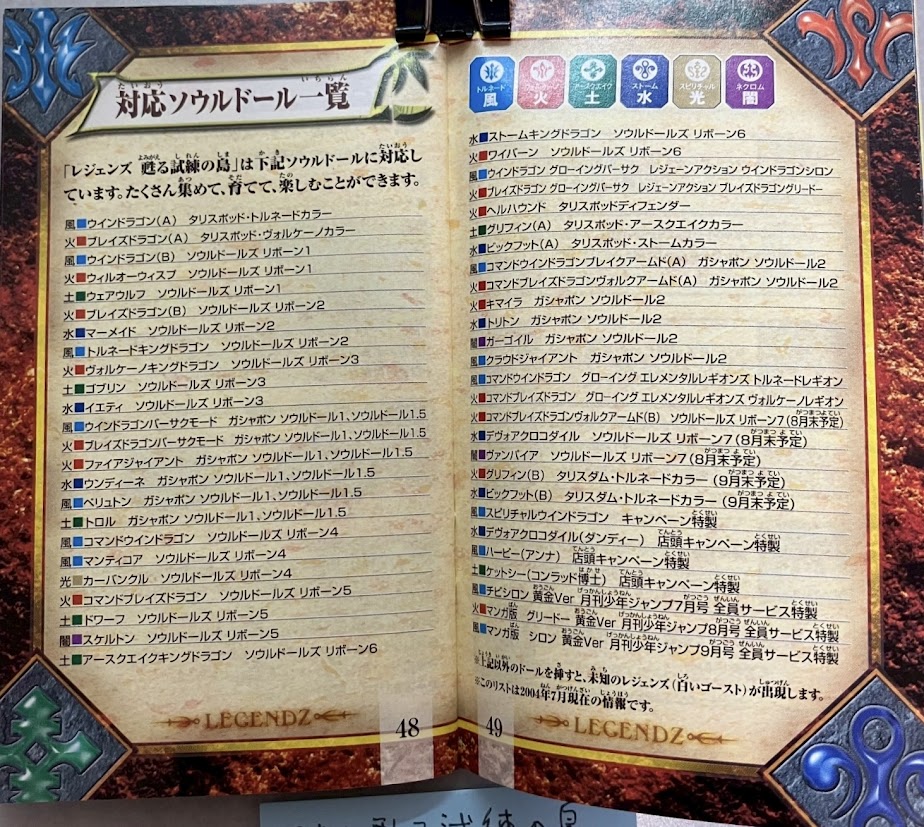 対応ソウルドール一覧
「レジェンズ 甦る試練の島」は下記ソウルドールに対応し
ています。たくさん集めて、育てて、楽しむことができます。
風 ウインドラゴン(A) タリスポッド・トルネードカラー
火 ブレイズドラゴン(A) タリスポッド・ヴォルケーノカラー
風 ウインドラゴン(B) ソウルドールズ リボーン1
火 ウィルオーウィスプ ソウルドールズ リボーン1
土 ウェアウルフ ソウルドールズ リボーン1
火 ブレイズドラゴン(B) ソウルドールズ リボーン2
水 マーメイド ソウルドールズ リボーン2
風 トルネードキングドラゴン ソウルドールズ リボーン2
火 ヴォルケーノキングドラゴン ソウルドールズ リボーン3
土 ゴブリン ソウルドールズ リボーン3
水 イエティ ソウルドールズ リボーン3
風 ウインドラゴンバーサクモード ガシャポン ソウルドール1、ソウルドール1.5
火 ブレイズドラゴンバーサクモード ガシャポン ソウルドール1、ソウルドール1.5
火 ファイアジャイアント ガシャポン ソウルドール1、ソウルドール1.5
水 ウンディーネ ガシャポン ソウルドール1、ソウルドール1.5
風 ペリュトン ガシャポン ソウルドール1、ソウルドール1.5
土 トロル ガシャポン ソウルドール1、ソウルドール1.5
風 コマンドウインドラゴン ソウルドールズ リボーン4
風 マンティコア ソウルドールズ リボーン4
光 カーバンクル ソウルドールズ リボーン4
火 コマンドブレイズドラゴン ソウルドールズ リボーン5
土 ドワーフ ソウルドールズ リボーン5
闇 スケルトン ソウルドールズ リボーン5
土 アースクエイクキングドラゴン ソウルドールズ リボーン6
LEGENDZ
48
トルネード 風 火 アースクエイク 土 ストーム 水 スピリチャル 光 ネクロム 闇
水 ストームキングドラゴン ソウルドールズ リボーン6
火 ワイバーン ソウルドールズ リボーン6
風 ウインドラゴン グローイングバーサク レジェーンアクション ウインドラゴンシロン
火 ブレイズドラゴン グローイングバーサク レジェーンアクション ブレイズドラゴングリードー
火 ヘルハウンド タリスポッドディフェンダー
土 グリフィン(A) タリスポッド・アースクエイクカラー
水 ビックフット(A) タリスポッド・ストームカラー
風 コマンドウインドラゴンブレイクアームド(A) ガシャポン ソウルドール2
火 コマンドブレイズドラゴンヴォルクアームド(A) ガシャポン ソウルドール2
火 キマイラ ガシャポン ソウルドール2
水 トリトン ガシャポン ソウルドール2
闇 ガーゴイル ガシャポン ソウルドール2
風 クラウドジャイアント ガシャポン ソウルドール2
風 コマンドウインドラゴン グローイング エレメンタルレギオンズ トルネードレギオン
火 コマンドブレイズドラゴン グローイング エレメンタルレギオンズ ヴォルケーノレギオン
火 コマンドブレイズドラゴンヴォルクアームド(B) ソウルドールズ リボーン7(8月末予定)
水 デヴォアクロコダイル ソウルドールズ リボーン7(8月末予定)
闇 ヴァンパイア ソウルドールズ リボーン7(8月末予定)
火 グリフィン(B) タリスダム・トルネードカラー(9月末予定)
水 ビックフット(B) タリスダム・トルネードカラー(9月末予定)
風 スピリチャルウインドラゴン キャンペーン特製
水 デヴォアクロコダイル(ダンディー) 店頭キャンペーン特製
風 ハーピー(アンナ) 店頭キャンペーン特製
土 ケットシー(コンラッド博士) 店頭キャンペーン特製
風 チビシロン 黄金Ver 月刊少年ジャンプ7月号 全員サービス特製
火 マンガ版 グリードー 黄金Ver 月刊少年ジャンプ8月号 全員サービス特製
風 マンガ版 シロン 黄金Ver 月刊少年ジャンプ9月号 全員サービス特製
※上記以外のドールを挿すと、未知のレジェンズ(白いゴースト)が出現します。
※このリストは2004年7月現在の情報です。
49
LEGENDZ